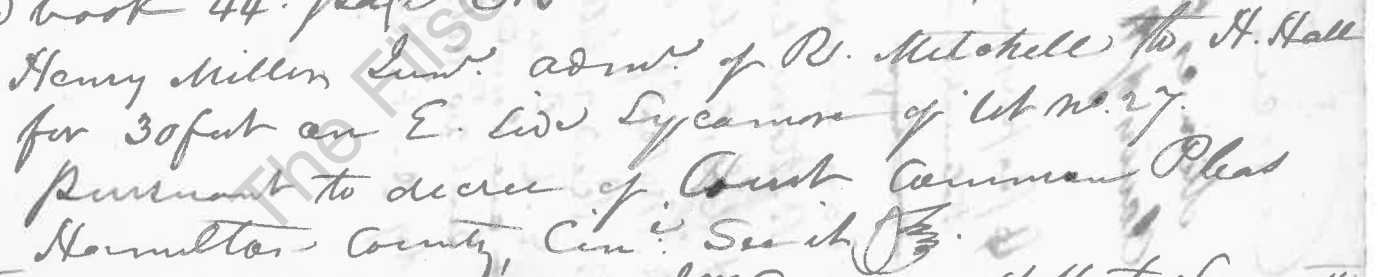 book 44. page
Henry Miller Junr. admr. of R. Mitchell to H. Hall
for 30 feet on E. side Sycamore of lot no. 27.
pursuant to decree of Court Common Pleas
Hamilton County, Cini. See it
The Filso